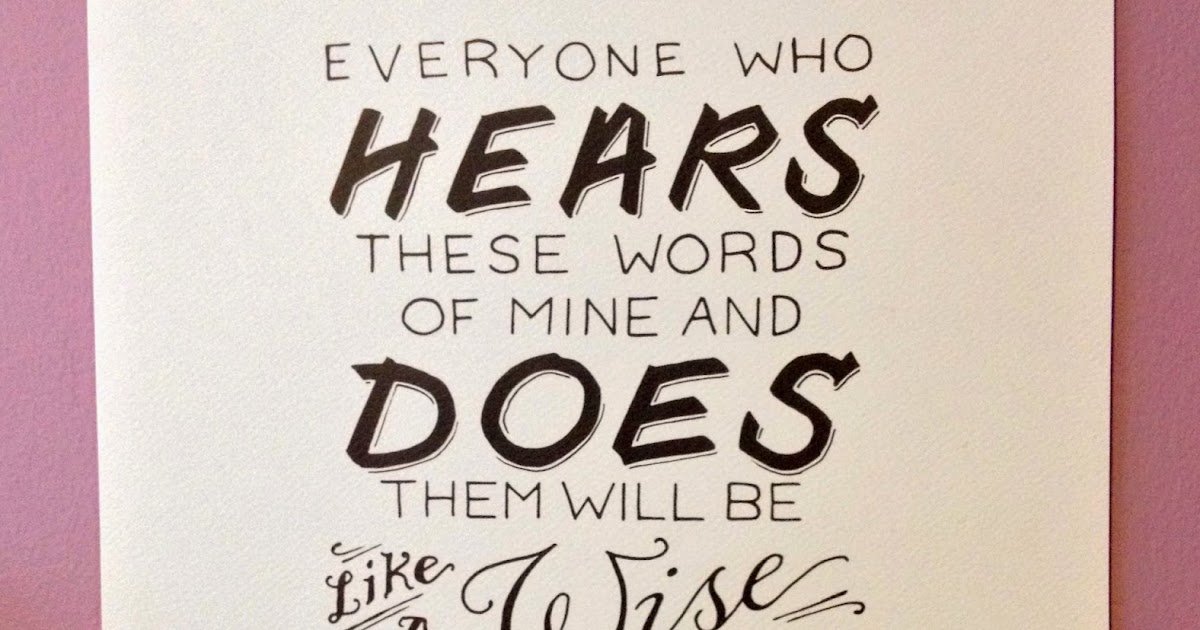 EVERYONE WHO
HEARS
THESE WORDS
OF MINE AND
DOES
THEM WILL BE
Like
Wise